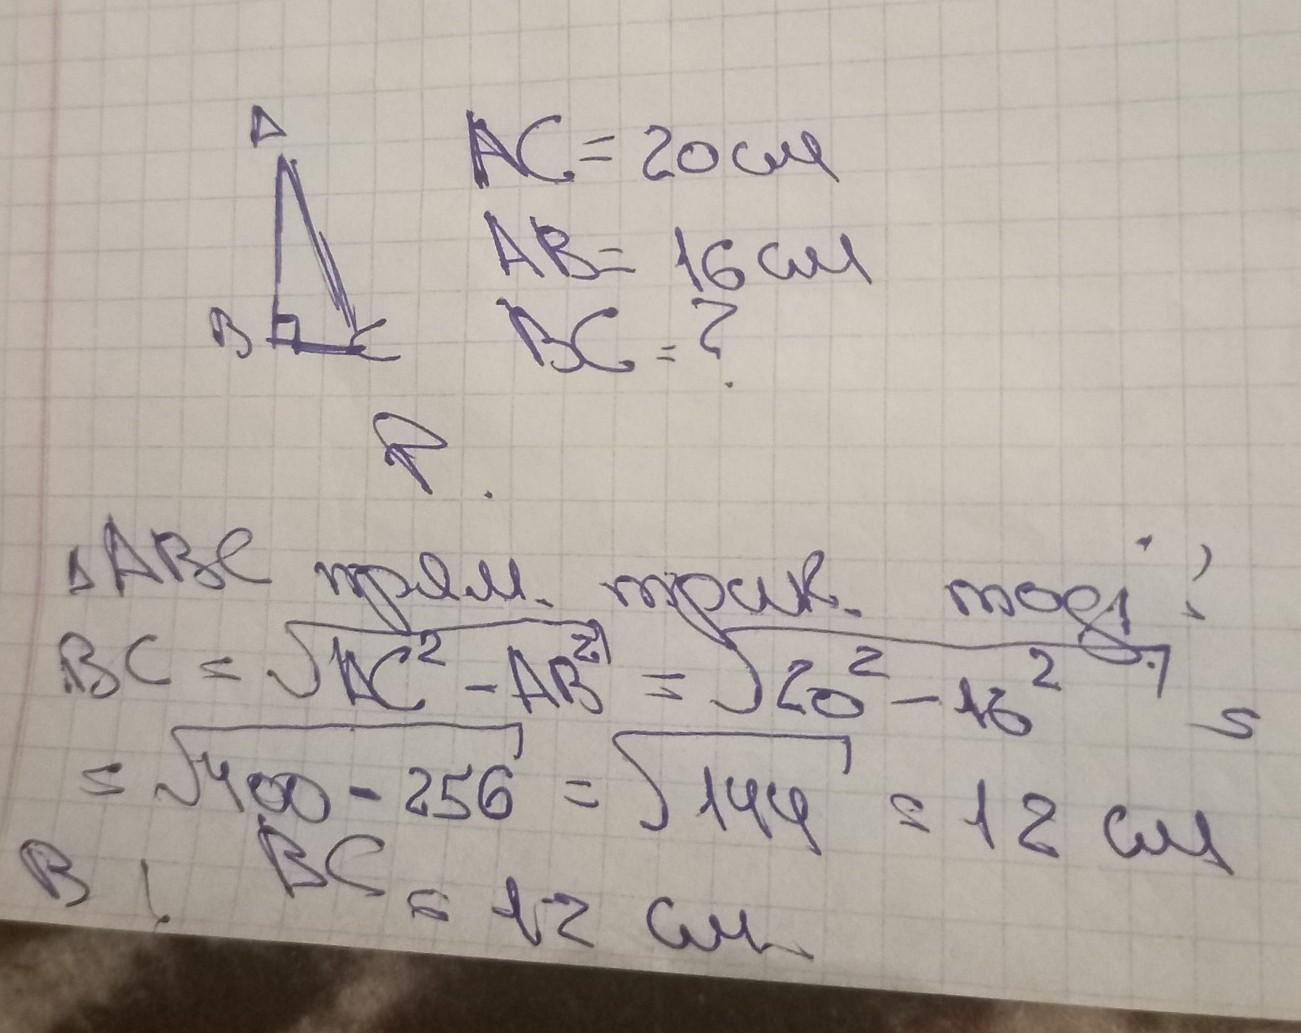 A
B
C
AC = 20 см
AB = 16 см
BC = ?
P.
△ABC прям. трик. тоді:
BC = √AC² - AB² = √20² - 16² =
= √400 - 256 = √144 = 12 см
В: BC = 12 см.